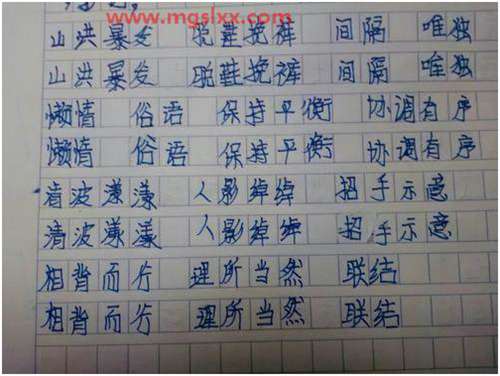 www.mgslxx.com
山洪暴发 脱鞋挽裤 间隔 唯独
山洪暴发 脱鞋挽裤 间隔 唯独
懒情 俗语 保持平衡 协调有序
懒情 俗语 保持平衡 协调有序
清波漾漾 人影绰绰 招手示意
清波漾漾 人影绰绰 招手示意
相背而行 理所当然 联结
相背而行 理所当然 联结